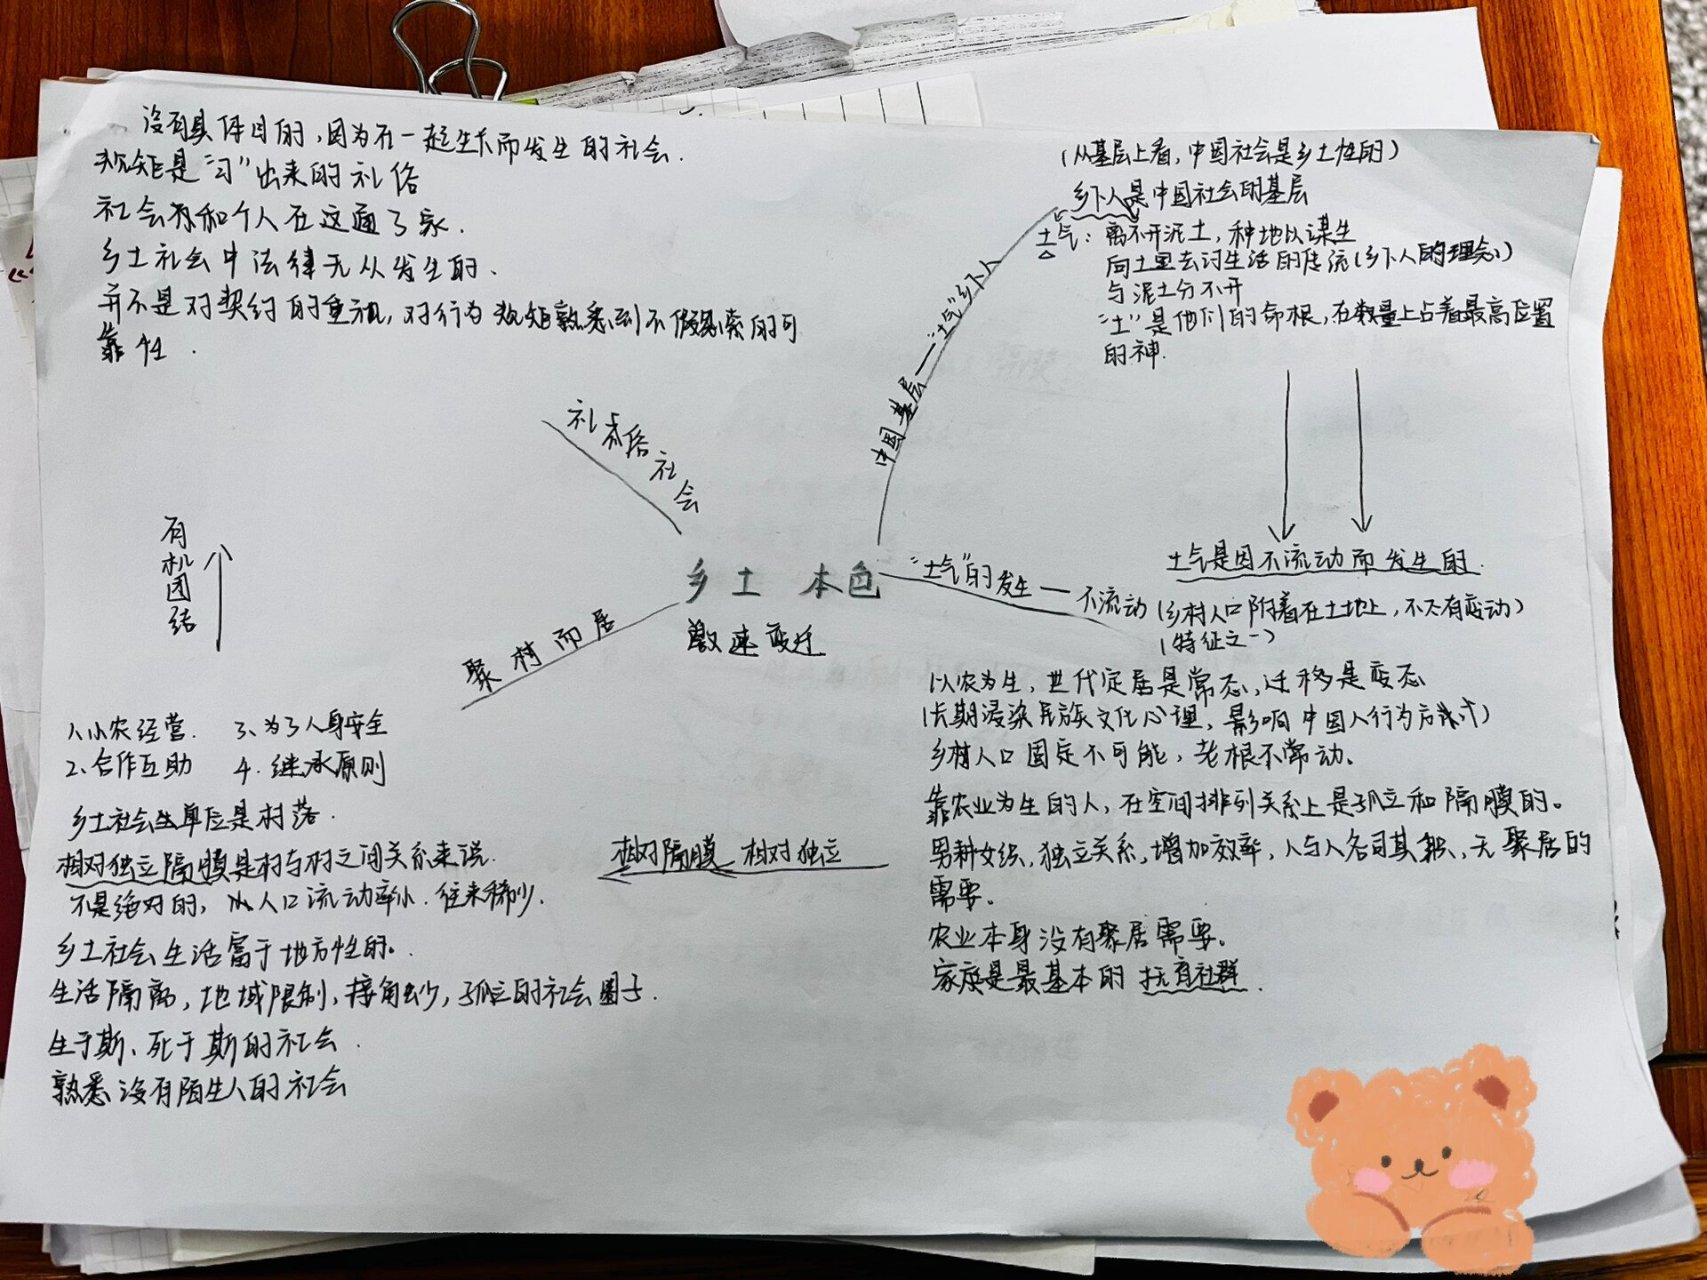 没有具体目的，因为在一起生长而发生的社会.
规矩是“习”出来的礼俗
社会和个人在这通了家.
乡土社会中法律无从发生的.
并不是对契约的重视，对行为规矩熟悉到不假思索的可
靠性.
(从基层上看，中国社会是乡土性的)
乡下人是中国社会的基层
土气：离不开泥土，种地以谋生
向土里去讨生活的传统(乡下人的理念)
与泥土分不开
“土”是他们的命根，在数量上占着最高位置
的神.
中国基层——“土气”乡下人
礼俗社会
有机团结
乡土 本色
激速变迁
“土气”的发生 — 不流动(乡村人口附着在土地上，不太有变动)
(特征之一)
土气是因不流动而发生的.
聚村而居
1、小农经营. 3、为了人身安全
2、合作互助 4. 继承原则
乡土社会的单位是村落.
相对独立隔膜是村与村之间关系来说.
不是绝对的，人口流动率小. 往来稀少.
乡土社会生活富于地方性的。
生活隔离，地域限制，接触少，孤立的社会圈子.
生于斯、死于斯的社会.
熟悉没有陌生人的社会
相对隔膜 相对独立
以农为生，世代定居是常态，迁移是变态
(长期浸染民族文化心理，影响中国人行为方式)
乡村人口固定不可能，老根不常动。
靠农业为生的人，在空间排列关系上是孤立和隔膜的。
男耕女织，独立关系，增加效率，人与人各司其职，无聚居的
需要。
农业本身没有聚居需要。
家庭是最基本的抚育社群.